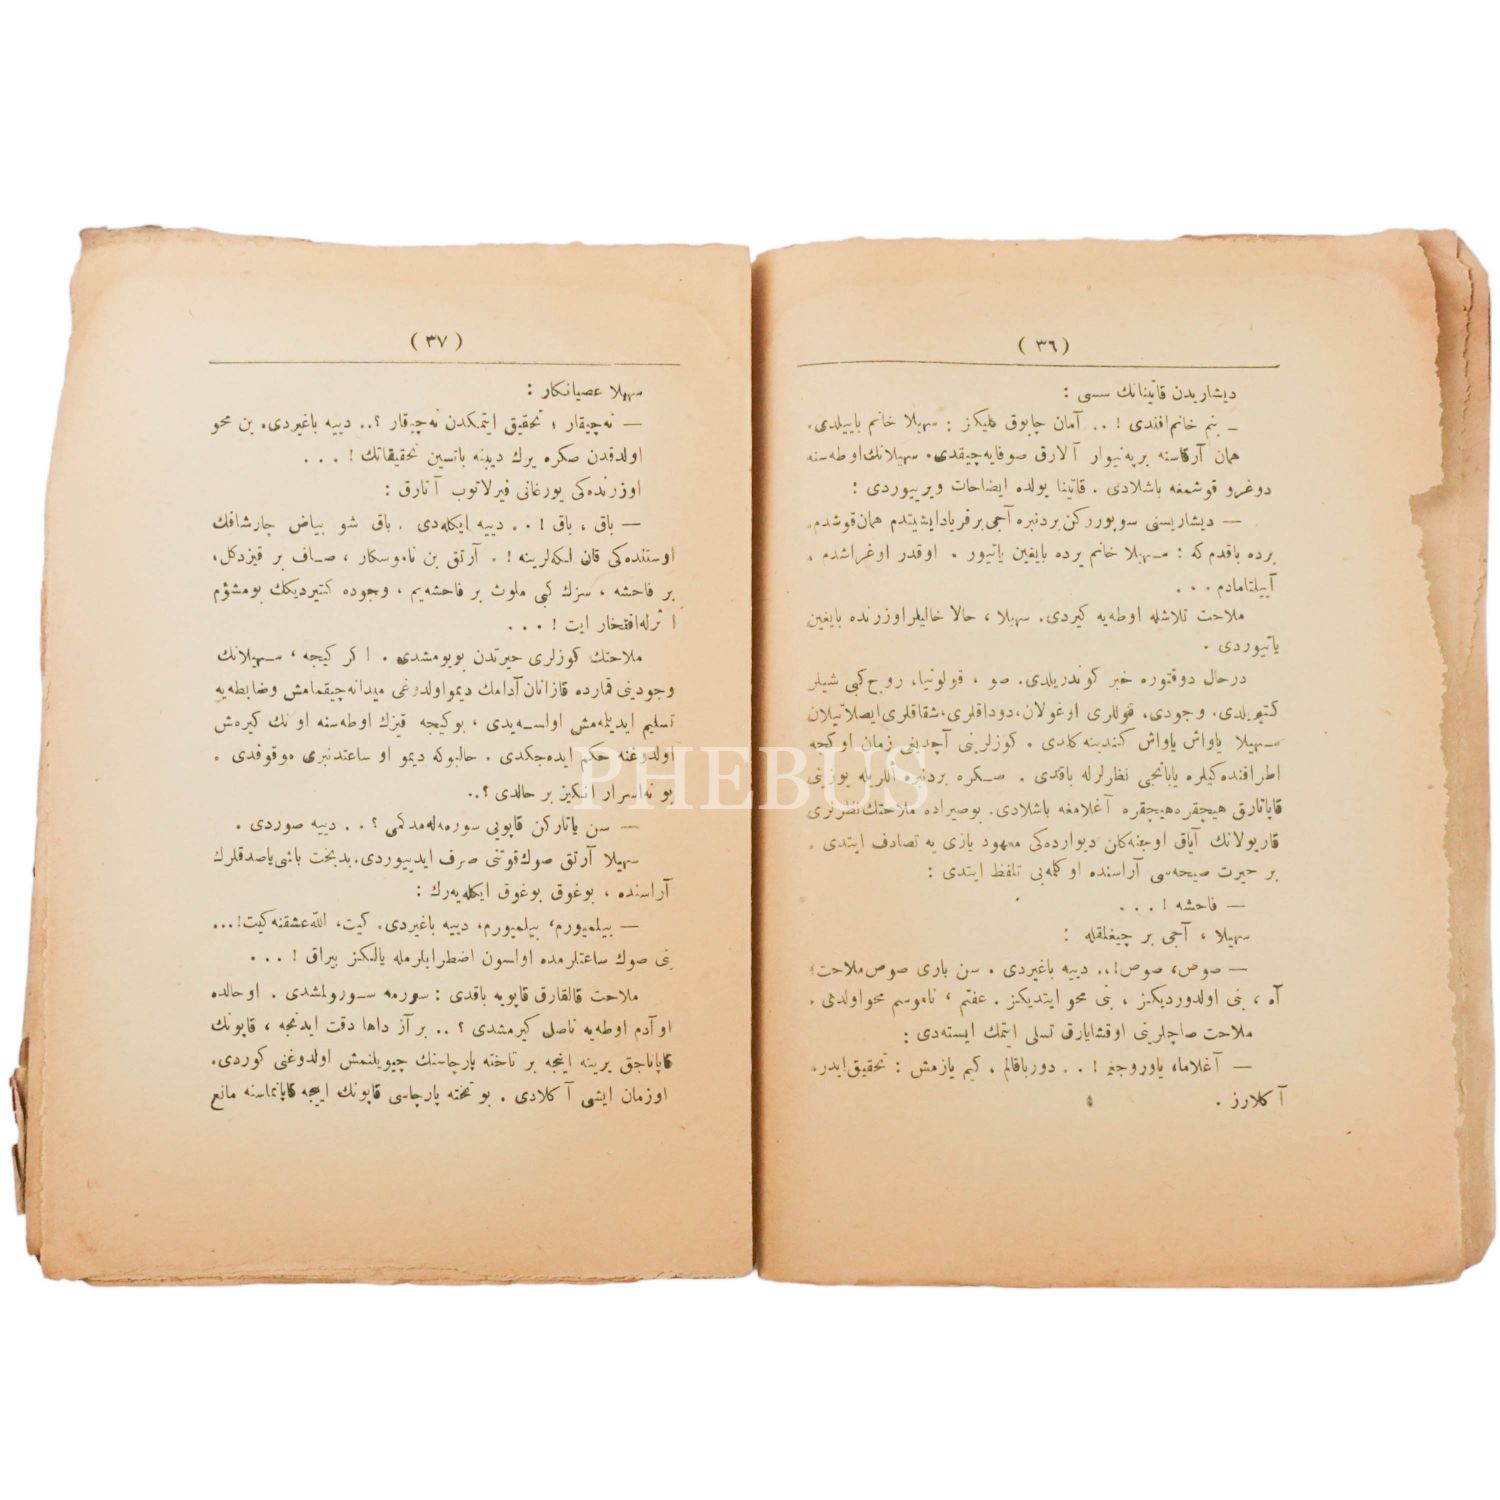 ( ٣٦ )
ديشاريدن قاتينانك سسى :
ـ بنم خانم افندى ! . . آمان چابوق كليكز : سهيلا خانم باييلدى .
همان آرقاسنه بر په نيوار آ لارق صوفايه چيقدى . سهيلانك اوطه سنه
دوغرو قوشمغه باشلادى . قاتينا يولده ايضاحات ويرييوردى :
— ديشاريسنى سوپوررکن بردنبره آجى بر فرياد ايشيتدم همان قوشدم .
برده باقدم كه : سهيلا خانم يرده بايغين ياتيور . اوقدر اوغراشدم ،
آييلتامادم . . .
ملاحت تلاشله اوطه يه كيردى . سهيلا ، حالا خاليلر اوزرنده بايغين
ياتيوردى .
درحال دوقتوره خبر كوندريلدى . صو ، قولونيا ، روح كبى شيلر
كتيريلدى . وجودى ، قوللرى اوغولان ، دوداقلرى ، شقاقلرى ايصلاتيلان
سهيلا ياواش ياواش كندينه كلدى . كوزلرينى آچديغى زمان اوكجه
اطرافنده كيلره يابانجى نظرلرله باقدى . صكره بردنبره اللريله يوزينى
قاپاتارق هيچقره هيچقره آغلامغه باشلادى . بوصيراده ملاحتك نظرلرى
قاريولانك آياق اوجنه كلن ديوارده كى معهود يازى يه تصادف ايتدى .
بر حيرت صيحه سى آراسنده او كلمه يى تلفظ ايتدى :
— فاحشه ! . . .
سهيلا ، آجى بر چيغلقله :
— صوص ، صوص ! . . دييه باغيردى . سن بارى صوص ملاحت ؛
آه ، بنى اولدوردیكز ، بنى محو ايتديكز . عفتم ، ناموسم محو اولدى .
ملاحت صاچلرينى اوقشايارق تسلى ايتمك ايسته دى :
— آغلاما ، ياوروجغم ! . . دور باقالم ، كيم يازمش : تحقيق ايدر ،
آ كلارز .
( ٣٧ )
سهيلا عصيانكار :
— نه چيقار ؛ تحقيق ايتمكدن نه چيقار ؟ . . دييه باغيردى . بن محو
اولدقدن صكره يرك ديبنه باتسين تحقيقاتك ! . . .
اوزرنده كى يورغانى فيرلاتوب آ تارق :
— باق ، باق ! . . دييه ايكله دى . باق شو بياض چارشافك
اوستنده كى قان لكه لرينه ! . آرتق بن ناموسكار ، صاف بر قيز دكل ،
بر فاحشه ، سزك كبى ملوث بر فاحشه يم ، وجوده كتيرديكك بو مشؤم
ا ثرله افتخار ايت ! . . .
ملاحتك كوزلرى حيرتدن بويومشدى . ا كر كيجه ، سهيلانك
وجودينى قمارده قازانان آدامك ديمو اولدوغى ميدانه چيقمامش و ضابطه يه
تسليم ايديلمه مش اولسه يدى ، بو كيجه قيزك اوطه سنه او نك كيرمش
اولدوغنه حكم ايده جكدى . حالبوكه ديمو او ساعتدنبرى موقوفدى .
بو نه اسرار انكيز بر حالدى ؟ . .
— سن ياتاركن قاپويى سورمه له مدكمى ؟ . . دييه صوردى .
سهيلا آرتق صوك قوتنى صرف ايدييوردى . بدبخت باشى ياصدقلرك
آراسنده ، بوغوق بوغوق ايكله يه رك :
— بيلميورم ، بيلميورم ، دييه باغيردى . كيت ، الله عشقنه كيت ! . . .
بنى صوك ساعتلرمده اولسون اضطرابلرمله يالكز بيراق ! . . .
ملاحت قالقارق قاپويه باقدى : سورمه سورولمشدى . او حالده
او آدم اوطه يه ناصل كيرمشدى ؟ . . بر آز داها دقت ايدنجه ، قاپونك
قاپاناجق يرينه اينجه بر تاخته پارچاسنك چيويلنمش اولدوغنى كوردى .
اوزمان ايشى آ كلادى . بو تخته پارچاسى قاپونك اييجه قاپانماسنه مانع
PHEBUS